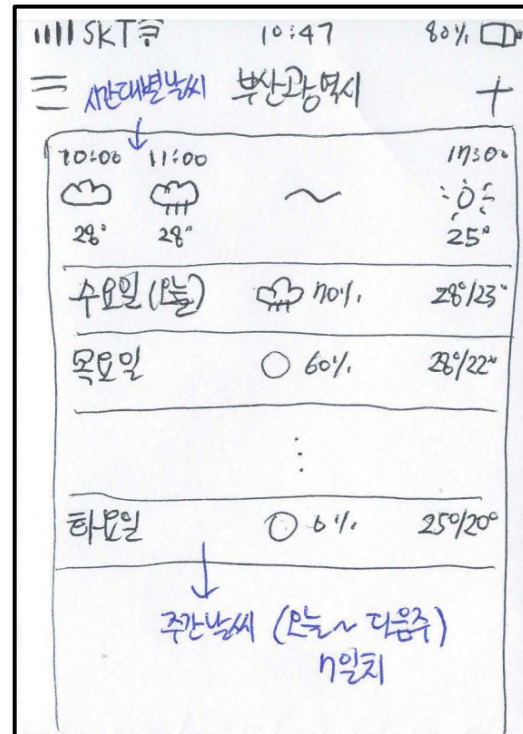 SKT 10:47 80%
시간대별날씨 부산광역시 +
10:00 11:00 ~ 17:00
28° 28° 25°
수요일 (오늘) 70% 28°/23°
목요일 60% 28°/22°
⋮
화요일 0% 25°/20°
주간날씨 (오늘~다음주)
7일치